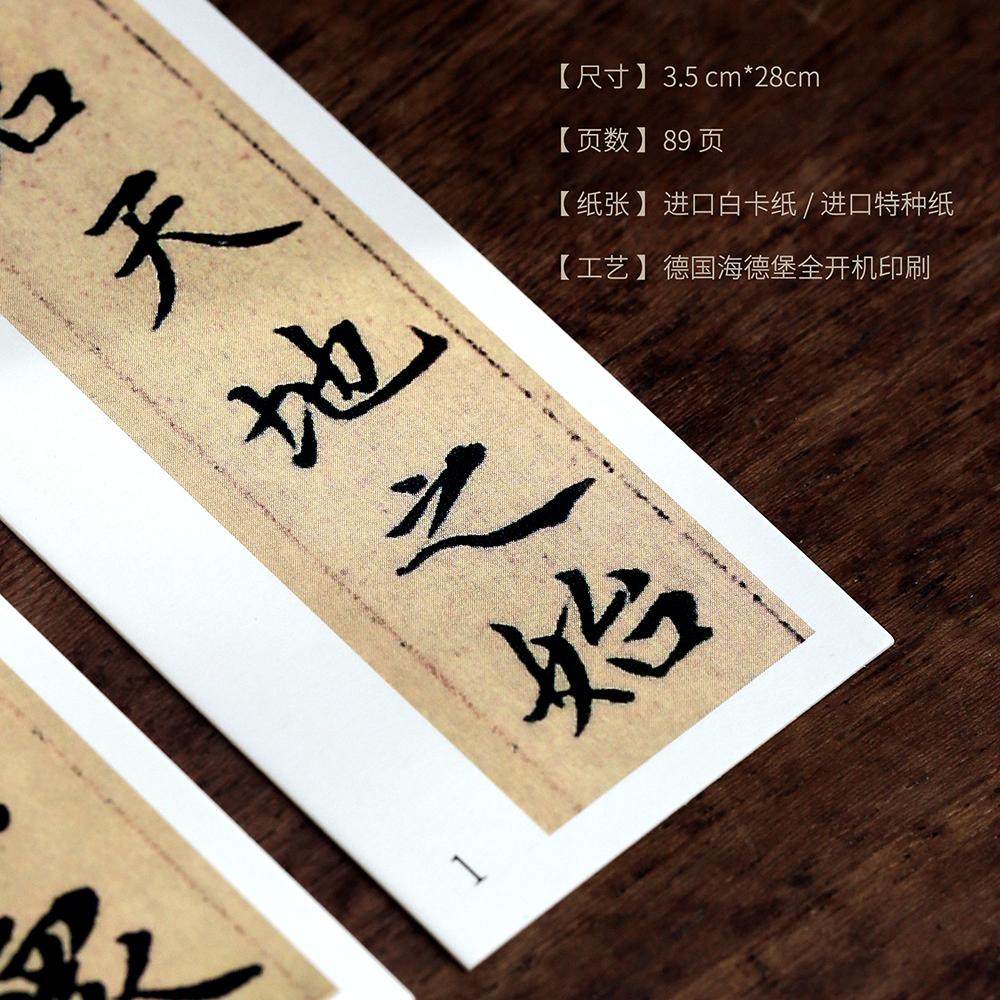 【尺寸】3.5 cm*28cm
【页数】89 页
【纸张】进口白卡纸 / 进口特种纸
【工艺】德国海德堡全开机印刷
天地之始
1